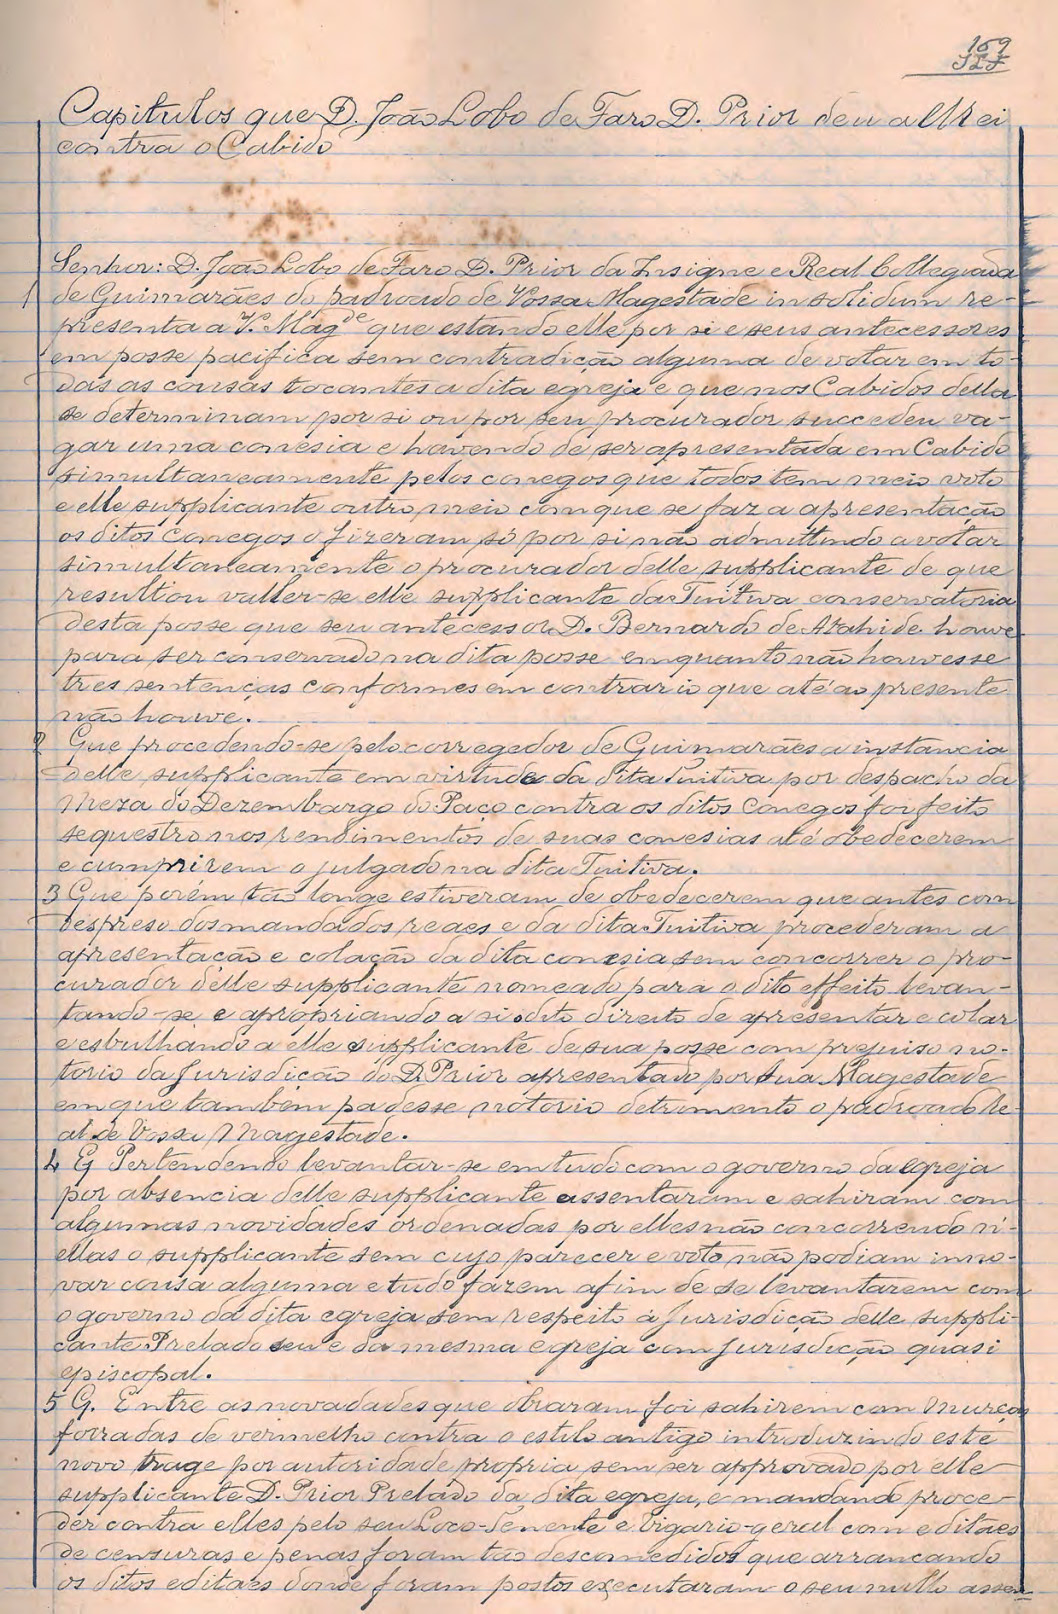 169
Capitulos que D. João Lobo de Faro D. Prior deu a ElRei
contra o Cabido
Senhor: D. João Lobo de Faro D. Prior da Insigne e Real Collegiada
1 de Guimarães do padroado de Vossa Magestade in solidum re-
presenta a V. Mag.de que estando elle por si e seus antecessores
em posse pacifica sem contradição alguma de votar em to-
das as cousas tocantes a dita egreja e que nos Cabidos della
se determinam por si ou por seu procurador succedeu va-
gar uma conesia e havendo de ser apresentada em Cabido
simultaneamente pelos conegos que todos tem meio voto
e elle supplicante outro meio com que se faz a apresentação
os ditos conegos o fizeram só por si não admittindo a votar
simultaneamente o procurador delle supplicante de que
resultou valler-se elle supplicante da Tuitiva conservatoria
desta posse que seu antecessor D. Bernardo de Atahide houve
para ser conservado na dita posse emquanto não houvesse
tres sentenças conformes em contrario que até ao presente
não houve.
2 Que procedendo-se pelo corregedor de Guimarães a instancia
delle supplicante em virtude da dita Tuitiva por despacho da
Meza do Dezembargo do Paço contra os ditos Conegos foi feito
sequestro nos rendimentos de suas conesias até obedecerem
e cumprirem o julgado na dita Tuitiva.
3 Que porém tão longe estiveram de obedecerem que antes com
despreso dos mandados reaes e da dita Tuitiva procederam a
apresentação e colação da dita conezia sem concorrer o pro-
curador delle supplicante nomeado para o dito effeito levan-
tando-se e apropriando a si o dito direito de apresentar e colar
e esbulhando a elle supplicante de sua posse com prejuiso no-
torio da Jurisdição do D. Prior apresentado por Sua Magestade
em que tambem padesse notorio detrimento o padroado Re-
al de Vossa Magestade.
4 Q Pertendendo levantar-se em tudo com o governo da egreja
por absencia delle supplicante assentaram e sahiram com
algumas novidades ordenadas por elles não concorrendo n'-
ellas o supplicante sem cujo parecer e voto não podiam inno-
var cousa alguma e tudo fazem afim de se levantarem com
o governo da dita egreja sem respeito á Jurisdição delle suppli-
cante Prelado seu e da mesma egreja com Jurisdicção quasi
episcopal.
5 Q. Entre as novadades que obraram foi sahirem com Murças
forradas de vermelho contra o estilo antigo introduzindo este
novo trage por autoridade propria sem ser approvado por elle
supplicante D. Prior Prelado da dita egreja, e mandando proce-
der contra elles pelo seu Loco-Tenente e Vigario-geral com editaes
de censuras e penas foram tão descomedidos que arrancando
os ditos editaes donde foram postos executaram o seu nullo assen